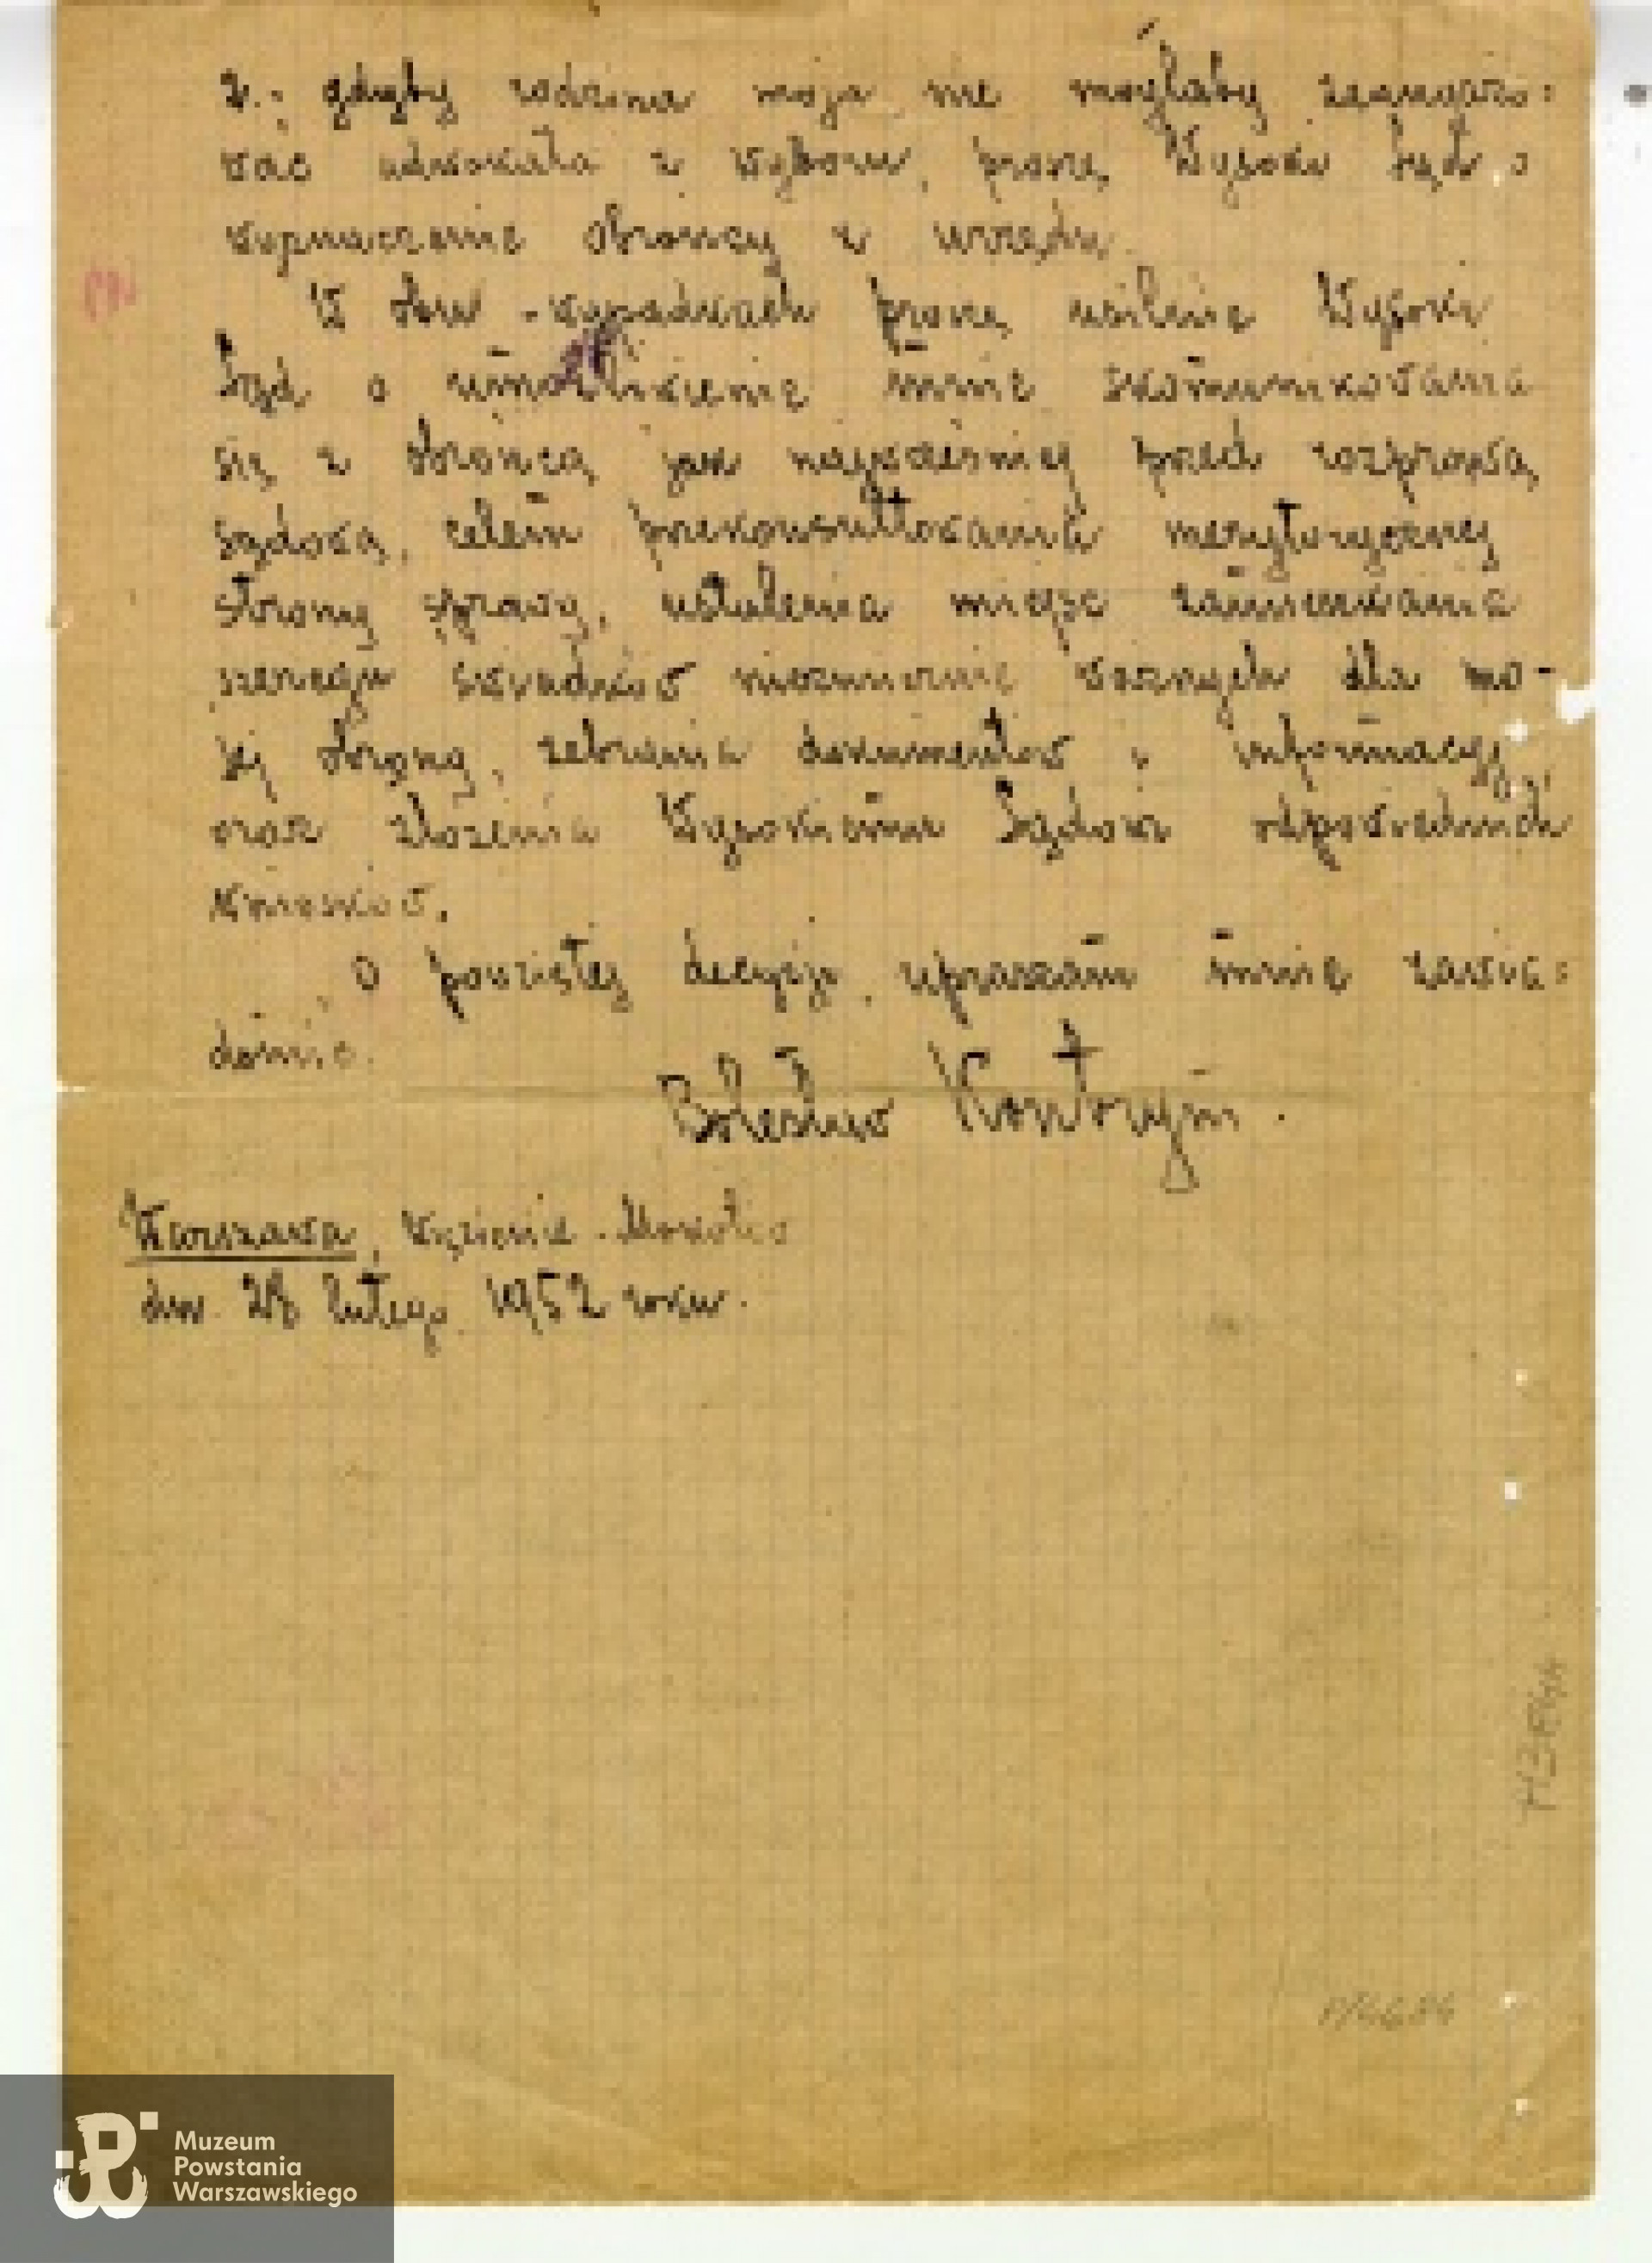 2.: gdyby rodzina moja nie mogłaby zaangażo=
wać adwokata z wyboru, proszę Wysoki Sąd o
wyznaczenie obrońcy z urzędu.
W obu wypadkach proszę usilnie Wysoki
Sąd o umożliwienie mnie skomunikowania
się z obrońcą jak najwcześniej przed rozprawą
sądową, celem przekonsultowania merytorycznej
strony sprawy, ustalenia miejsc zamieszkania
szeregu świadków niezmiernie ważnych dla mo-
jej obrony, zebrania dokumentów i informacyj,
oraz złożenia Wysokiemu Sądowi odpowiednich
wniosków.
O powziętej decyzji upraszam mnie zawia=
domić.
Bolesław Kontrym.
Warszawa, Więzienie - Mokotów
dn. 28 lutego 1952 roku.
P/4684
Muzeum
Powstania
Warszawskiego